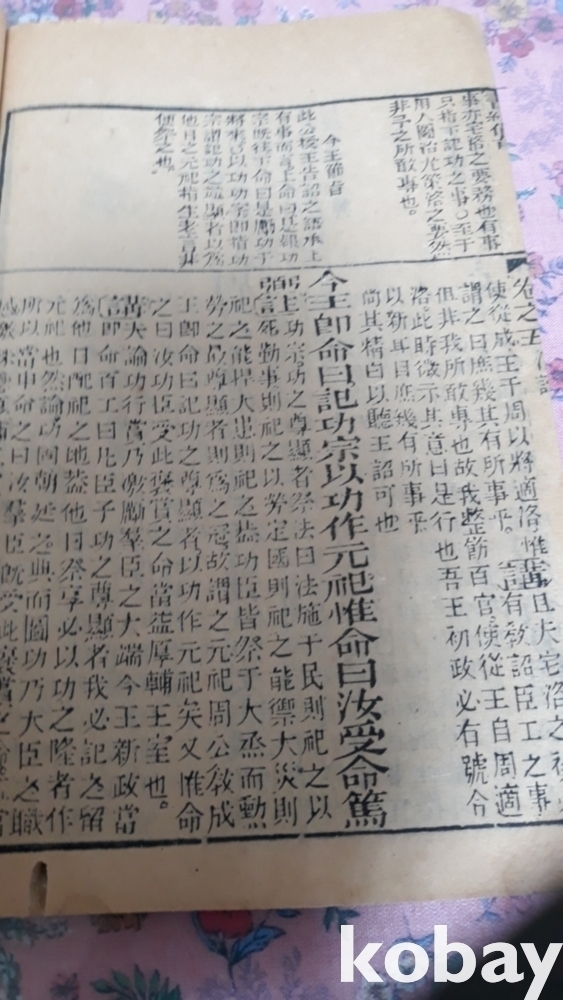 事亦宅洛之要務也有事
只指下記功之事○至于
用人圖治尤宅洛之要然
非予之所敢專也。
今王節旨
此公授王告詔之語承上
有事而言上命曰是報功于
宗既往下命曰是勵功于
將來皆以功功宗即指功
宗謂記功之
最尊顯者以爲
他日之元祀指生者言非
便祭之也。
卷之五 洛誥
使從成王于周以將適洛惟 講 且夫宅洛之
謂之曰庶幾其有所事乎。 語有敎詔臣工之事
但非我所敢專也故我整飭百官使從王自周適
洛此時微示其意曰是行也吾王初政必有號令
以新耳目庶幾有所事乎
尚其精白以聽王詔可也
今王卽命曰記功宗以功作元祀惟命曰汝受命篤
弼註功宗功之尊顯者祭法曰法施于民則祀之以
死勤事則祀之以勞定國則祀之能禦大災則
祀之能捍大患則祀之蓋功臣皆祭于大烝而勳
勞之最尊顯者則爲之冠故謂之元祀周公敎成
王卽命曰記功之尊顯者以功作元祀矣又惟命
之曰汝功臣受此褒賞之命當益厚輔王室也。
講夫論功行賞乃激勵羣臣之大端今王新政當
卽命百工曰凡臣子功之尊顯者我必記之留
爲他日配祀之地蓋他日祭享必以功之隆者作
元祀也然論功固朝廷之典而圖功乃大臣之職
所以當申命之曰汝羣臣旣受此褒賞之命當
kobay